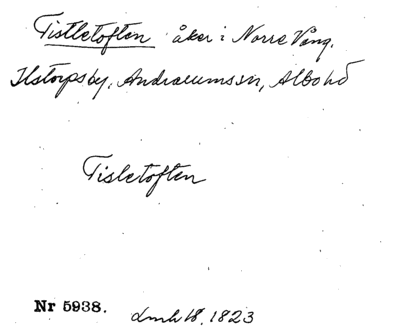 Tistletoften åker i Norre Vång.
Ilstorpsby, Andrarumssn, Albo hd
Tisletoften
Nr 5938. lmh 18, 1823